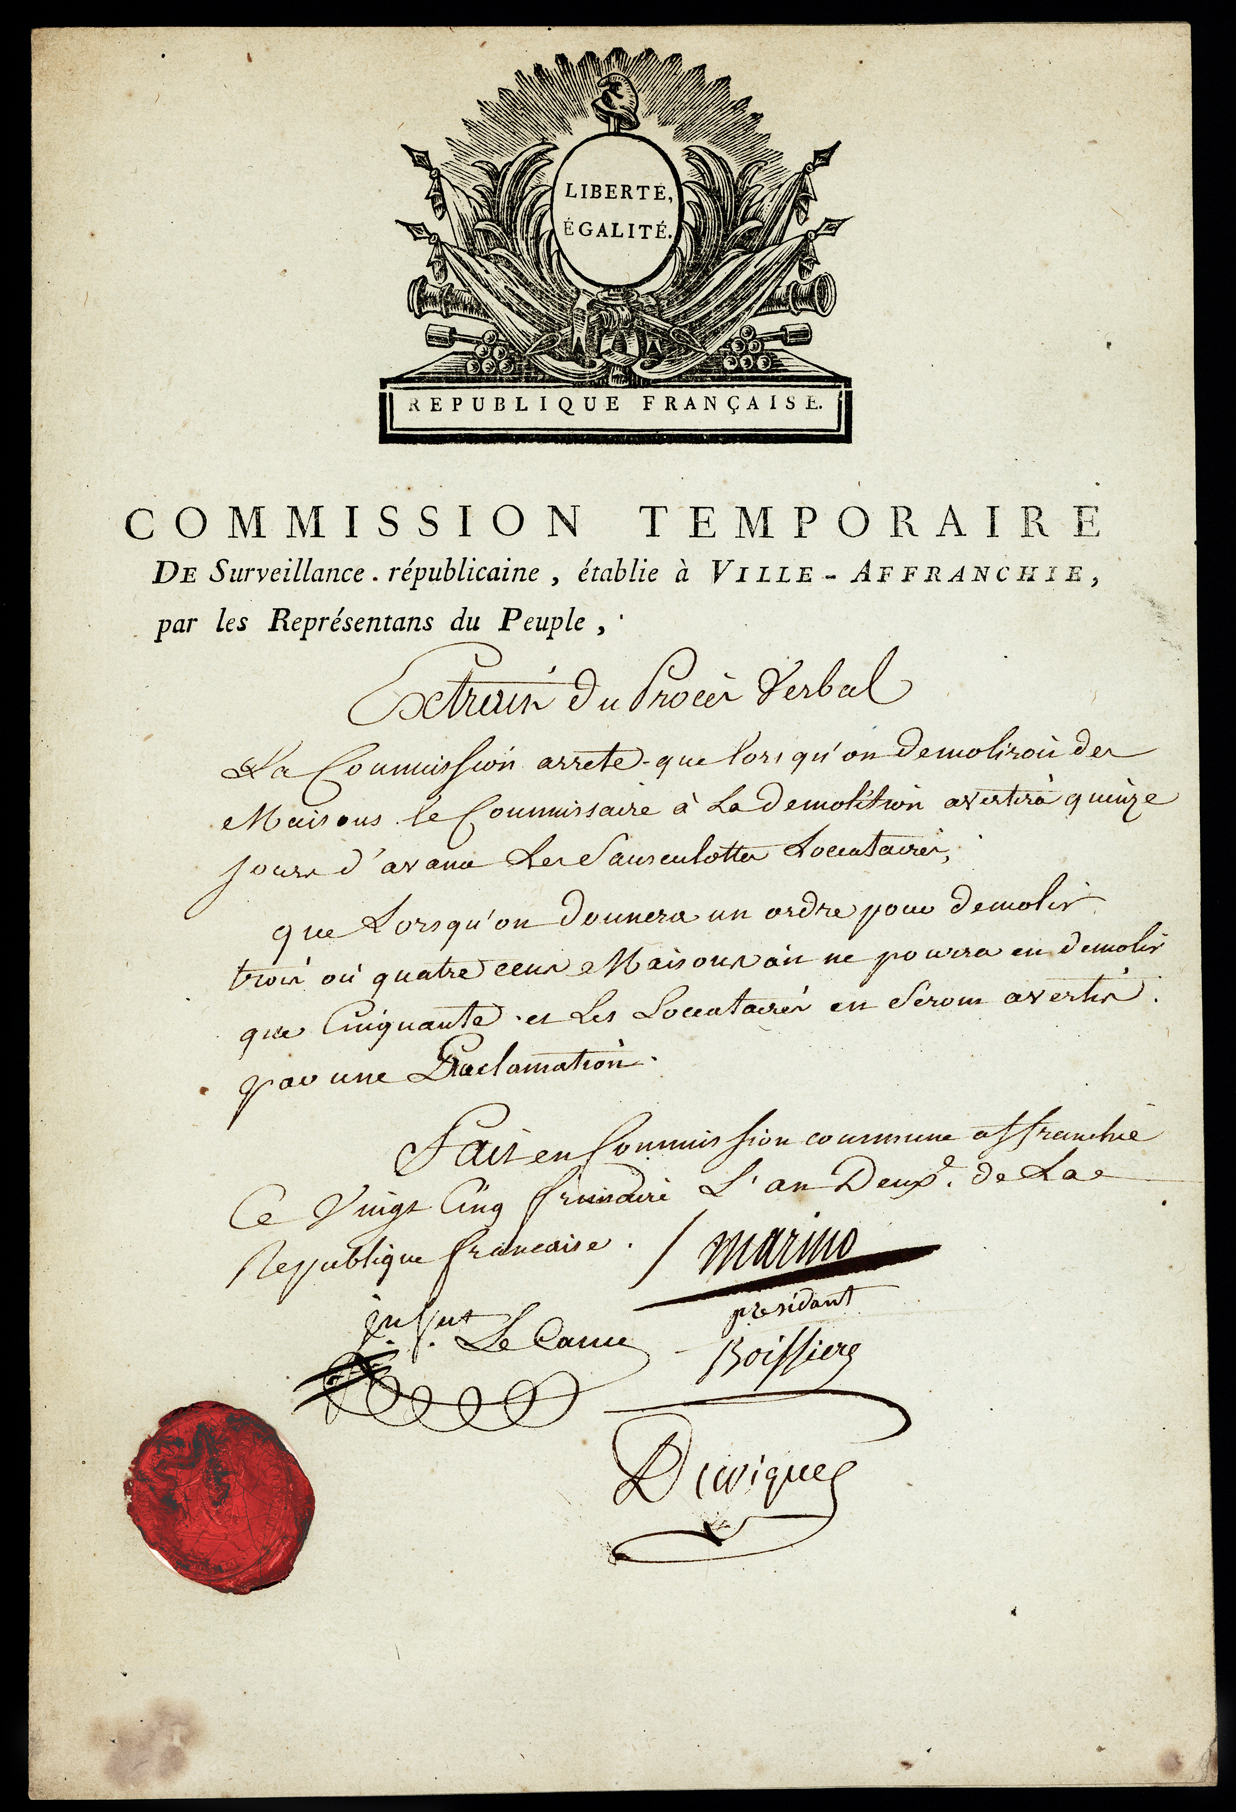 LIBERTÉ,
ÉGALITÉ.
REPUBLIQUE FRANÇAISE.
COMMISSION TEMPORAIRE
DE Surveillance républicaine, établie à VILLE-AFFRANCHIE,
par les Représentans du Peuple,
Extrait du Procès Verbal
La Commission arrete que lorsqu'on demoliroit des
Maisons le Commissaire à La demolition avertira quinze
jours d'avance Les Sansculottes Loccataires,
que Lorsqu'on donnera un ordre pour demolir
trois ou quatre cens Maisons on ne pourra en demolir
que Cinquante et Les Loccataires en Seront avertis
par une Proclamation.
Fait en Commission commune affranchie
Ce Vingt Cinq frimaire L'an Deux.e de La
Republique francaise.
marino
presidant
Le Canu
Boissiere
Duviquet